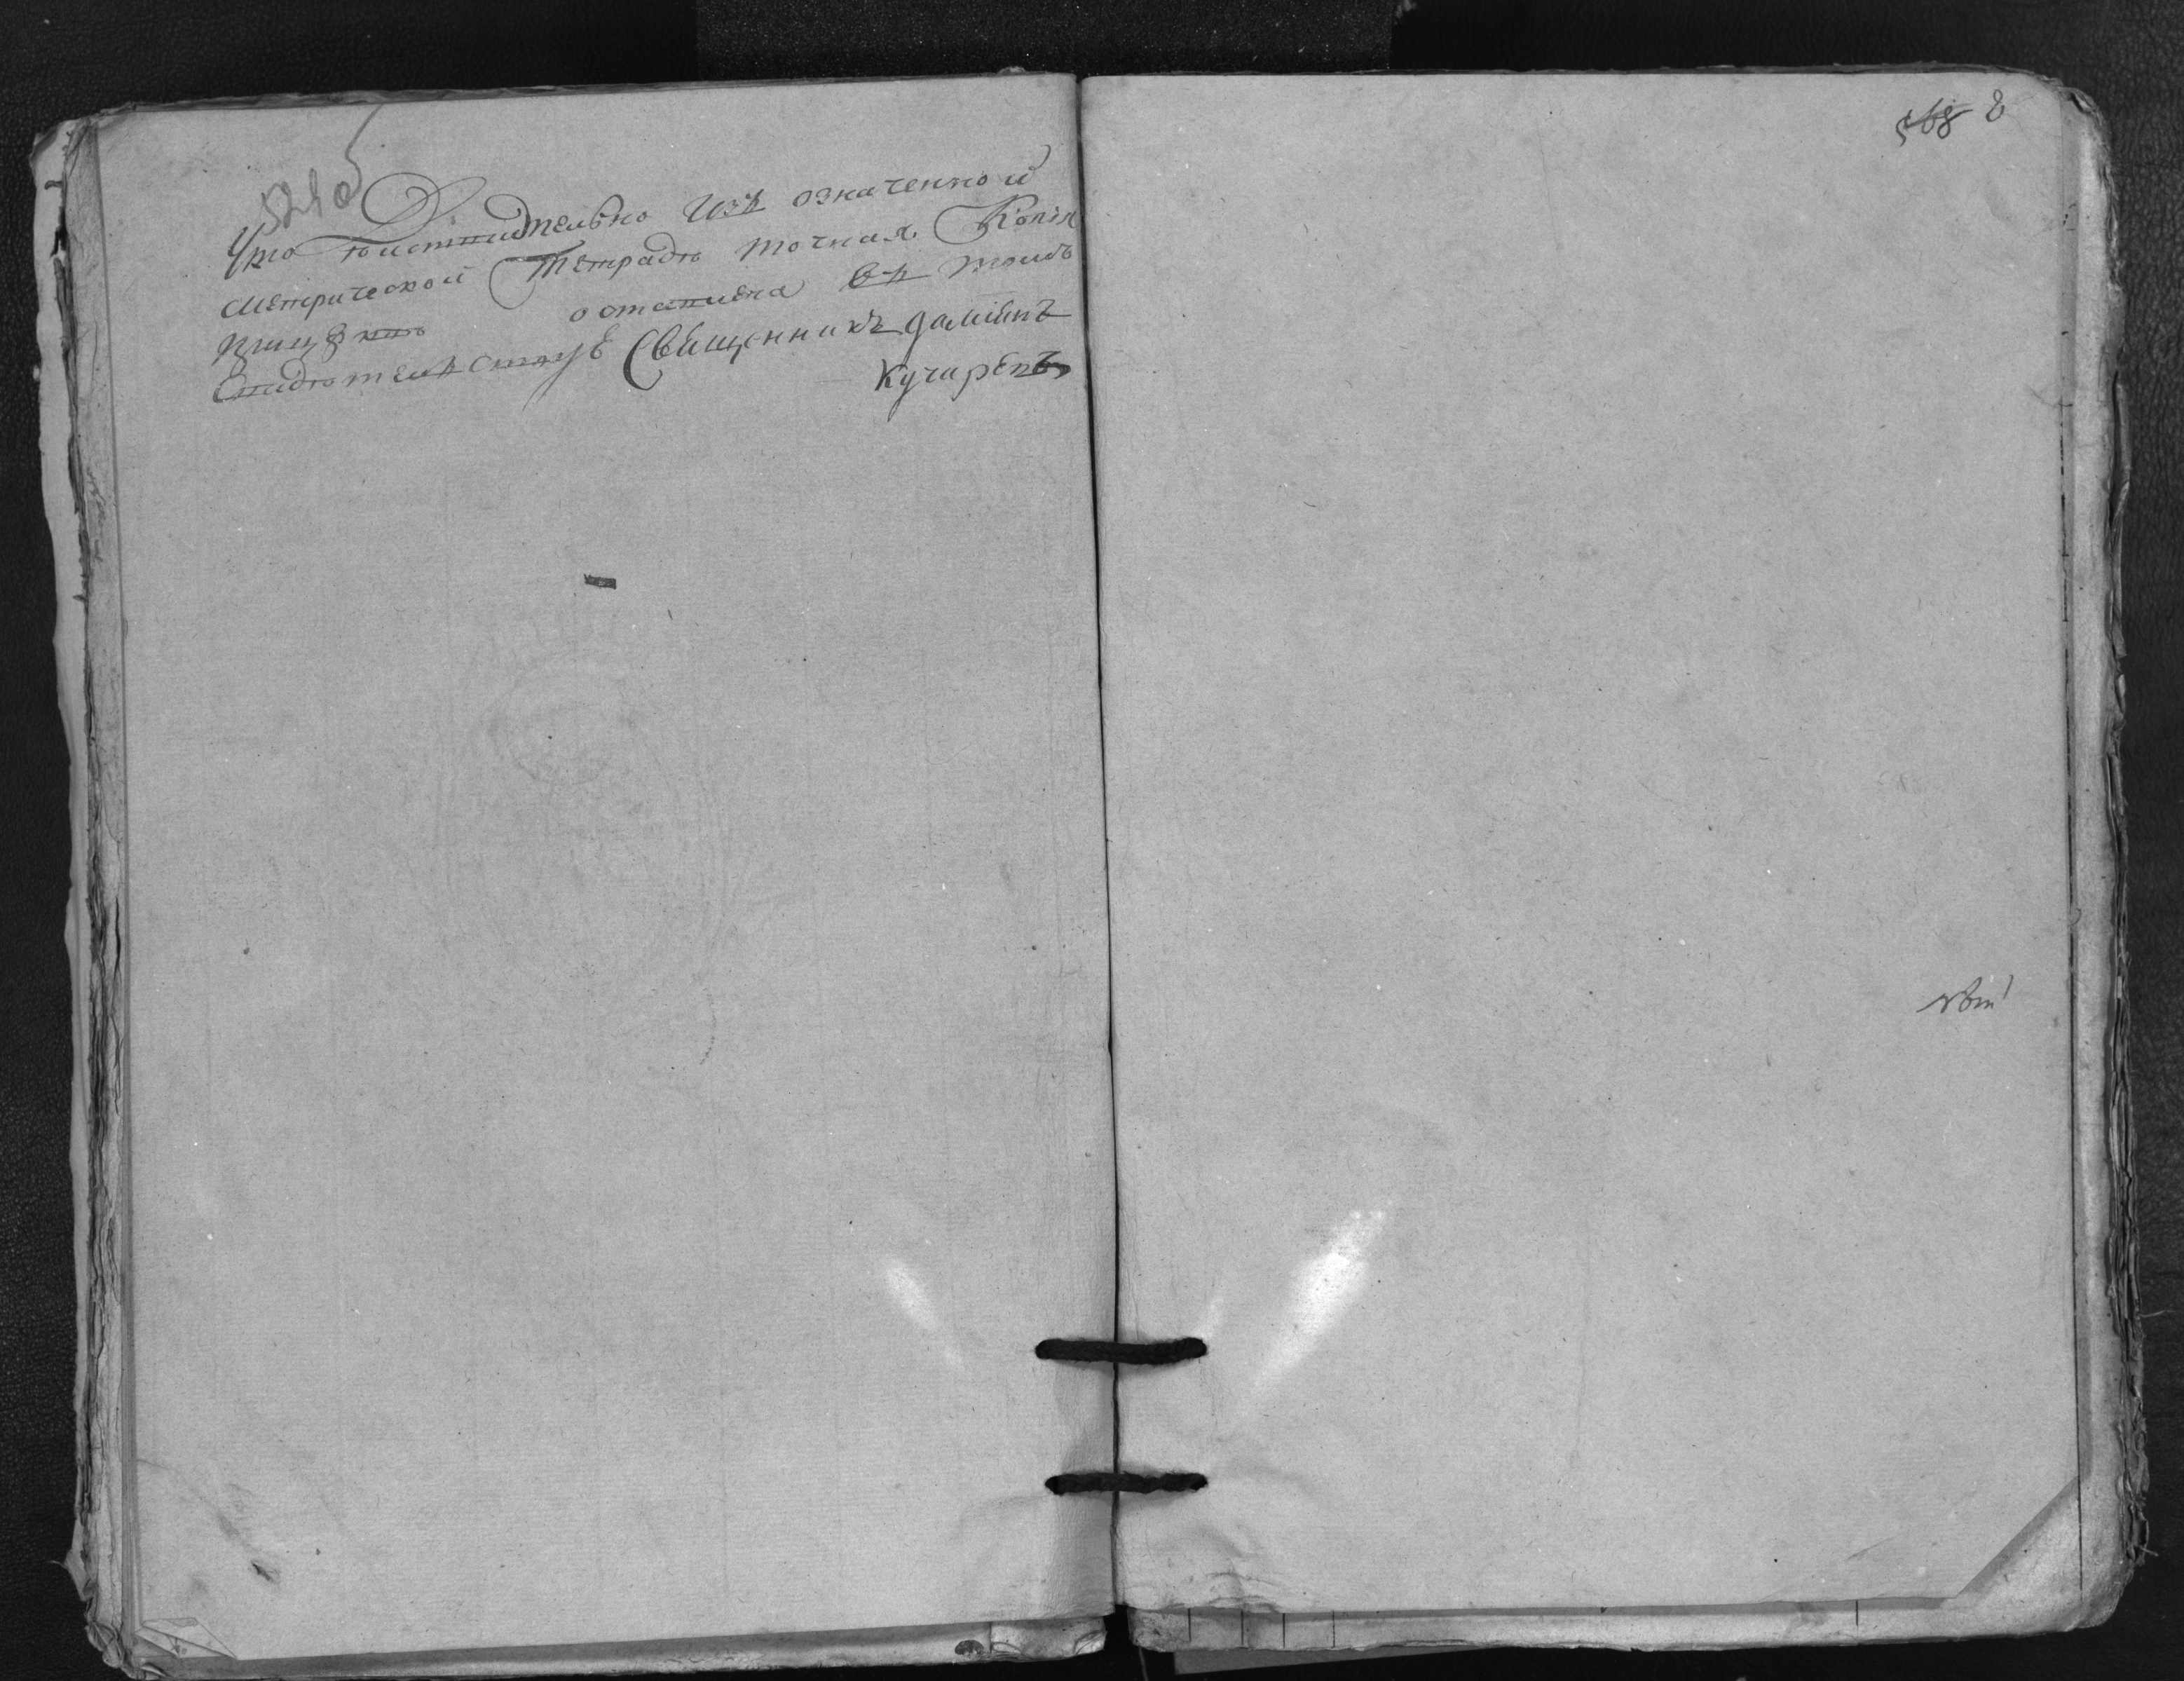 524 об
Что Действительно изъ означенной
Метрической Тетради точная Копія
оставлена въ томъ
Свидѣтельствуе Священникъ Даміянъ
Кучаренъ
568 8